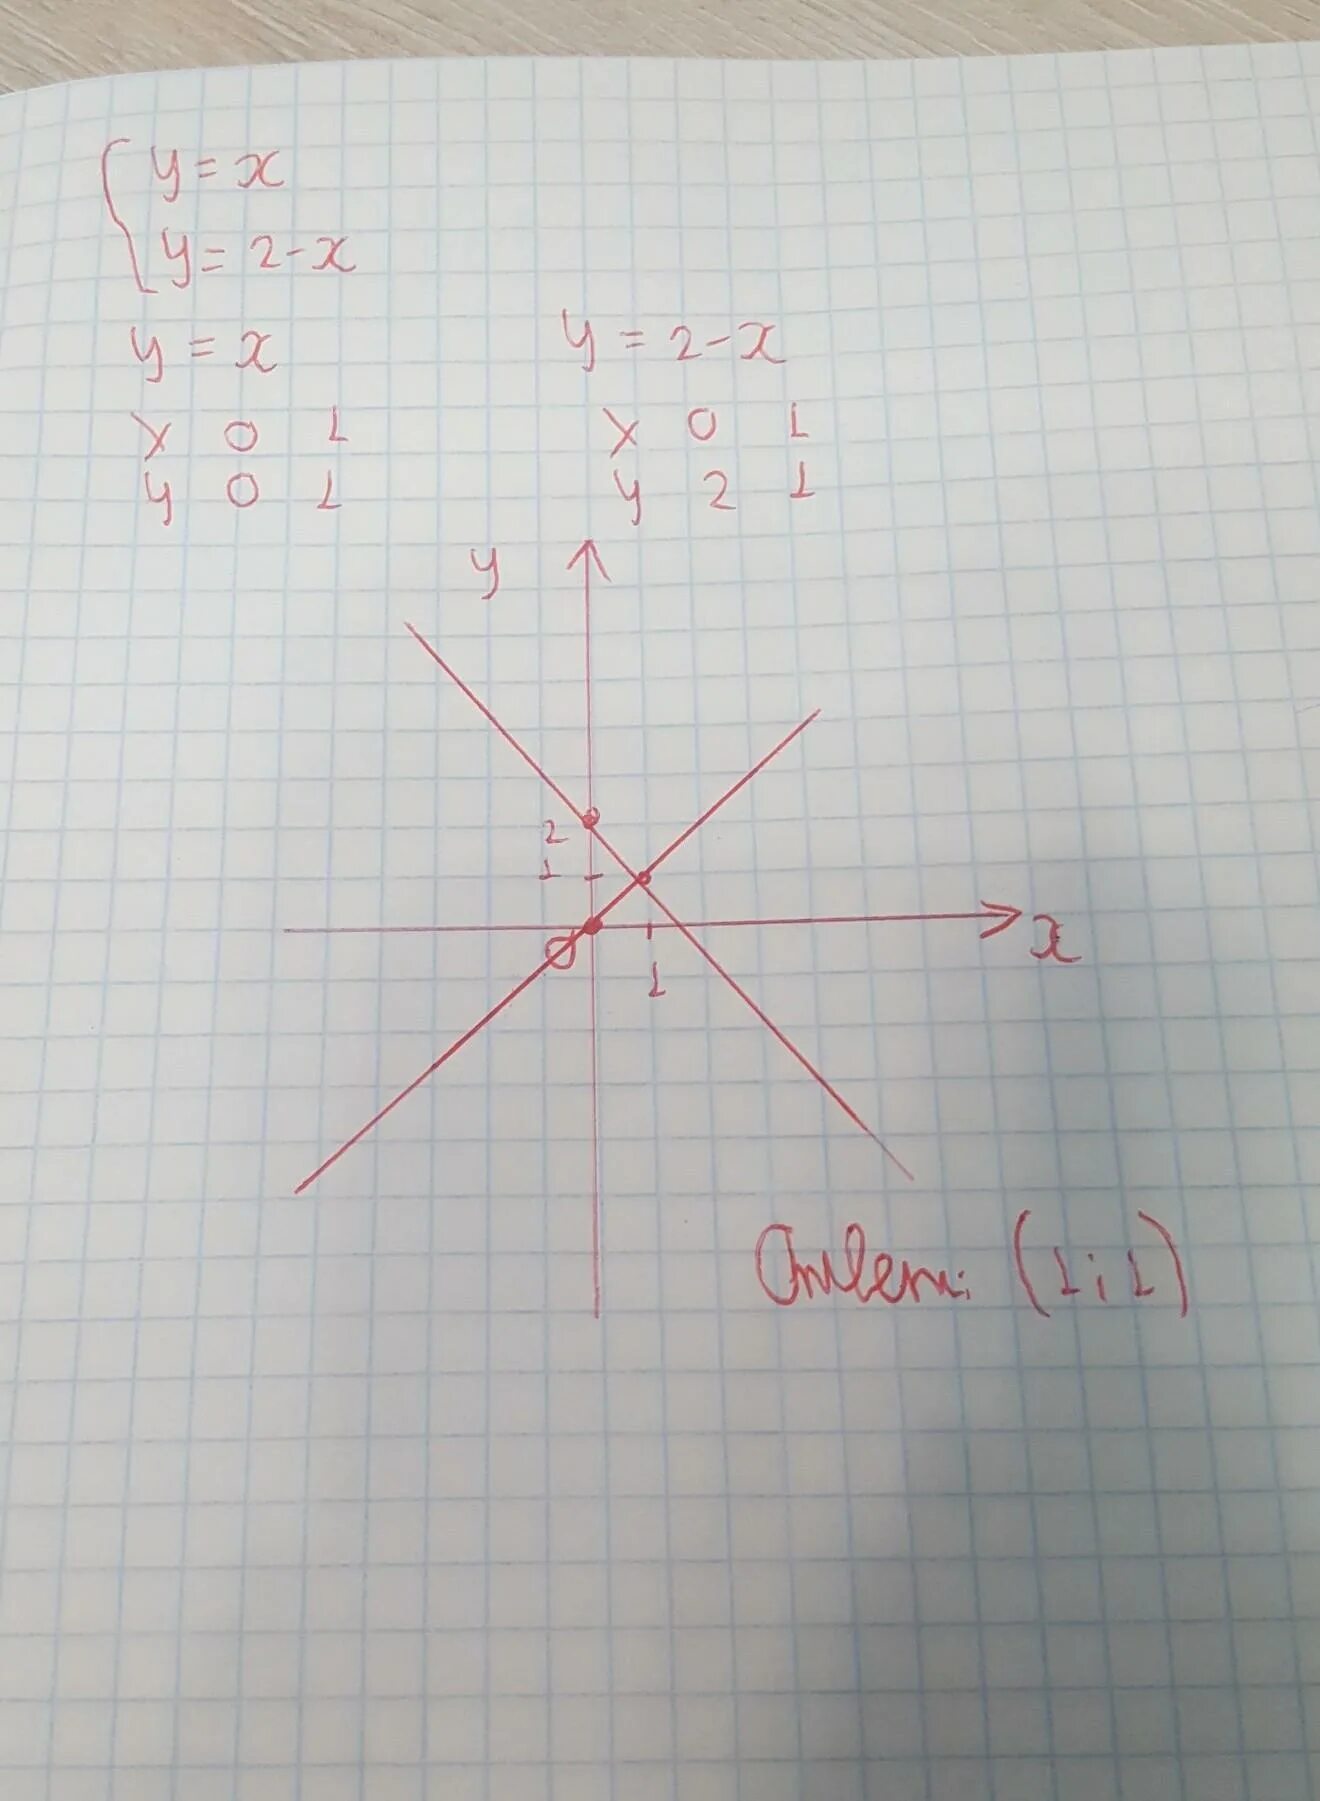 y = x
y = 2 - x
y = x
y = 2 - x
x 0 1
y 0 1
x 0 1
y 2 1
y
2
1
0
x
1
Ответ: (1; 1)